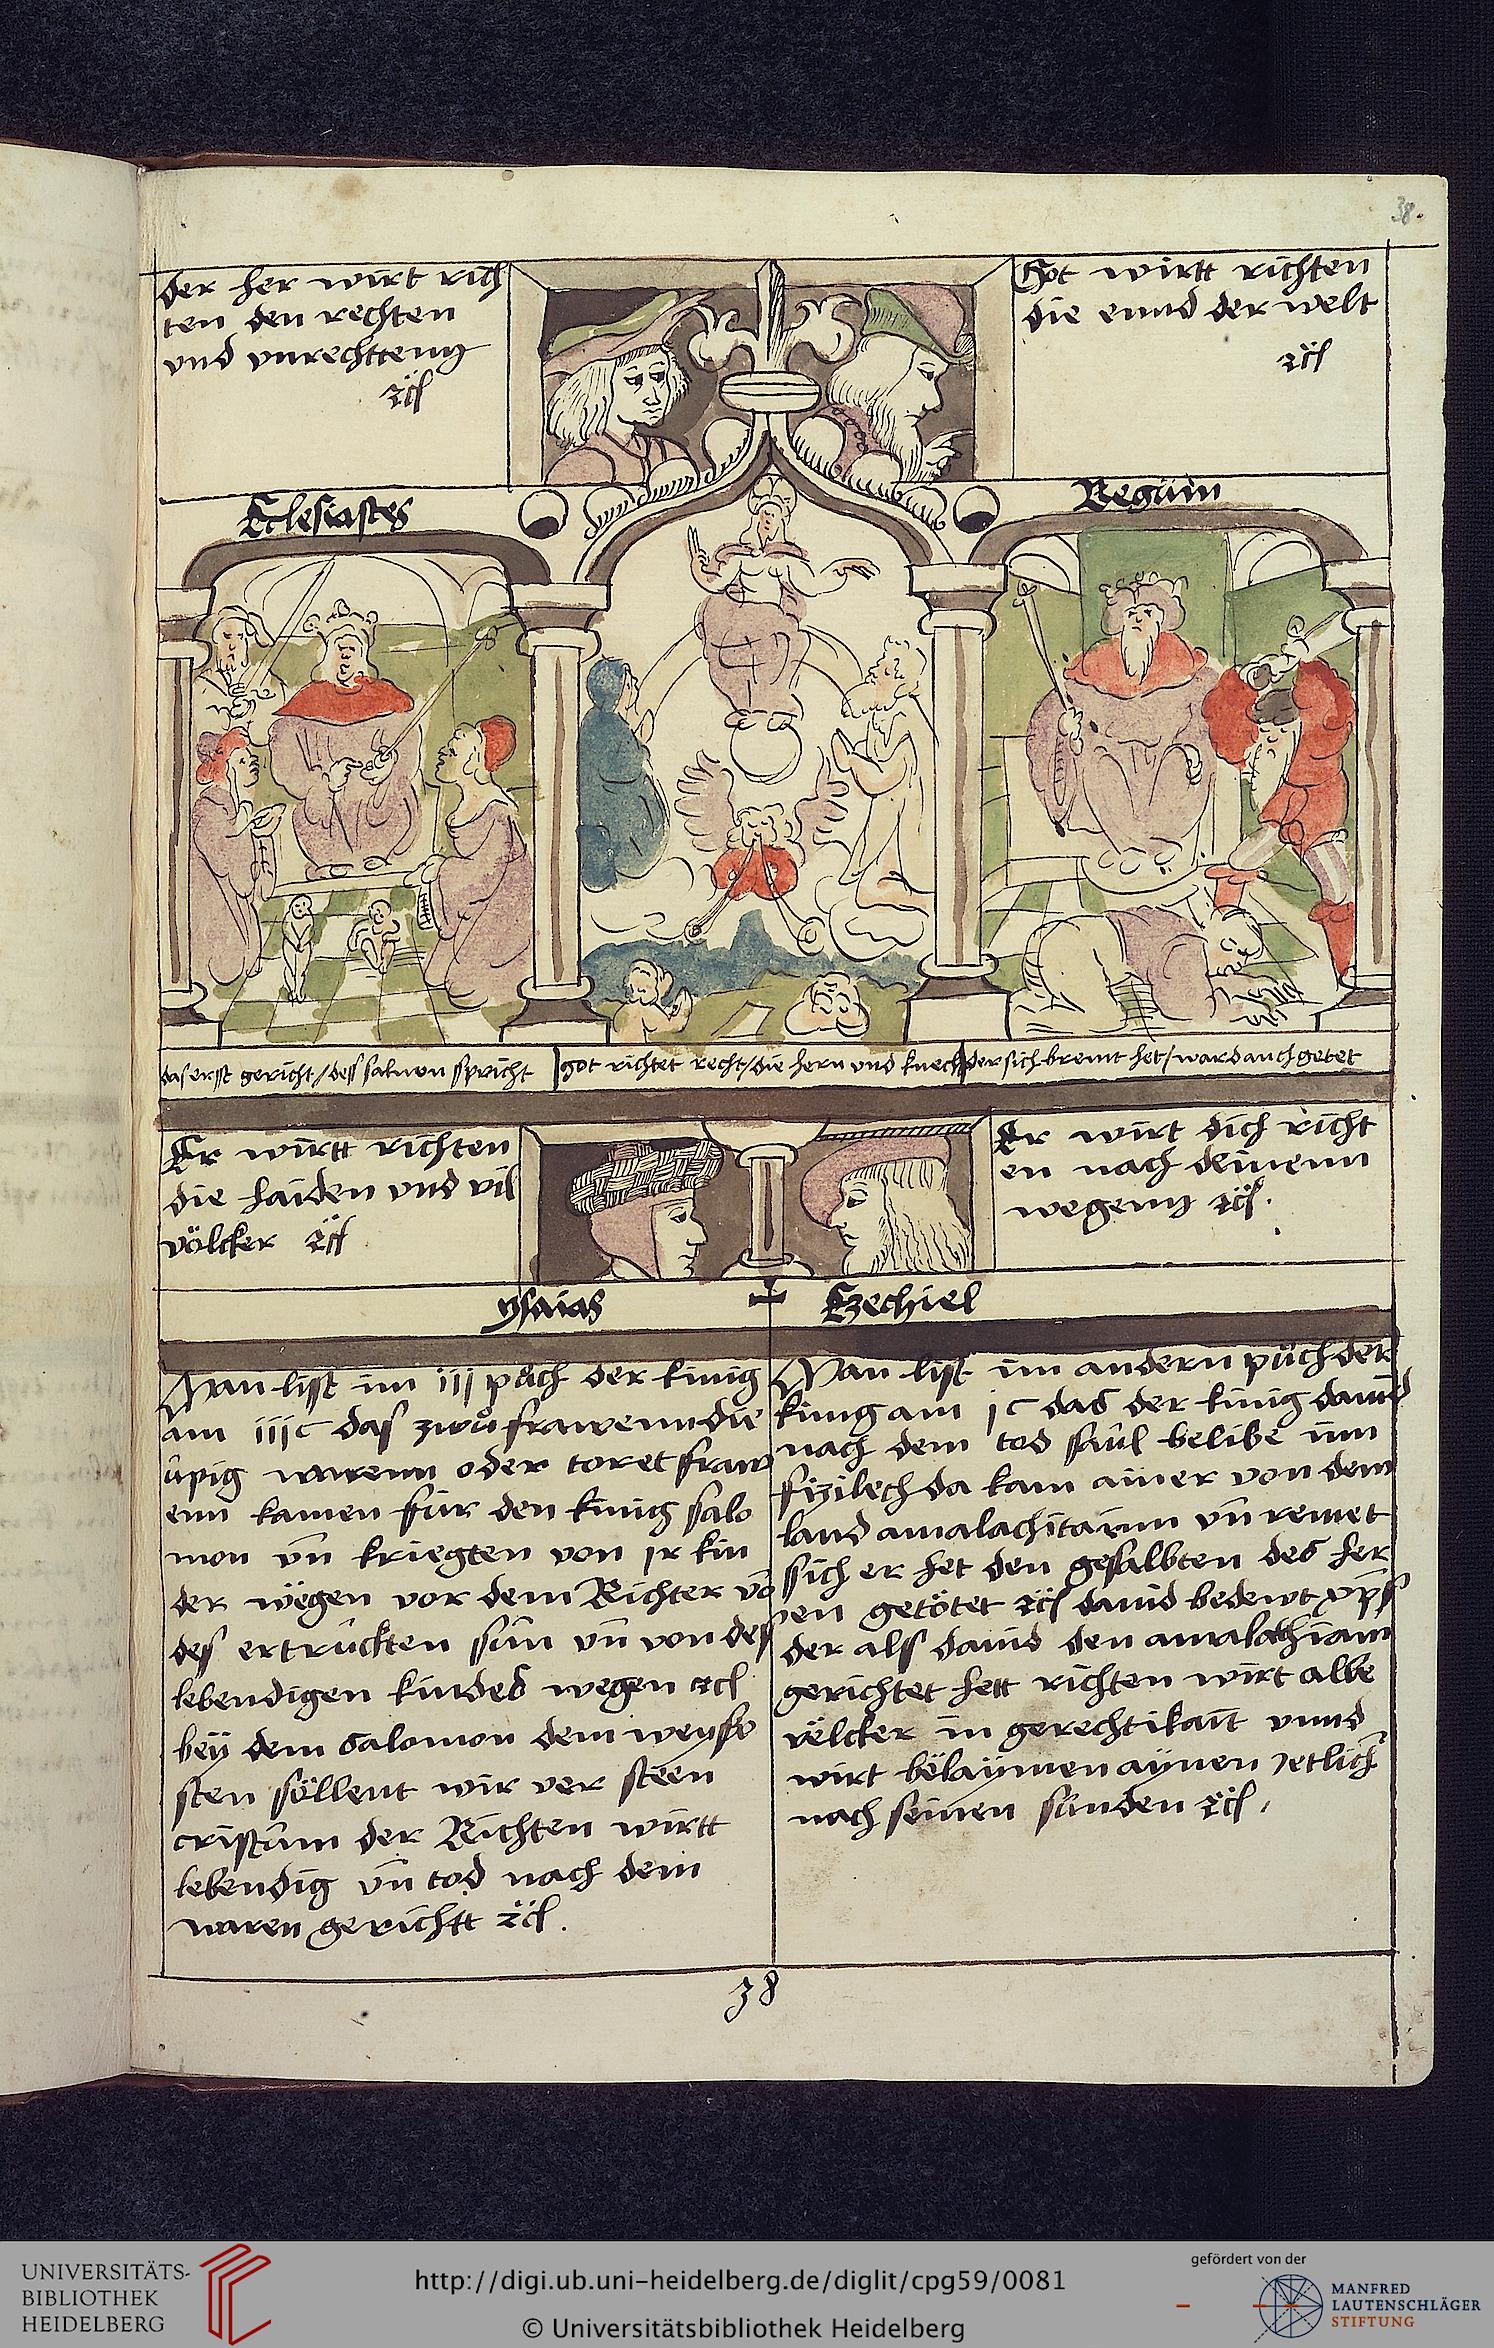 38.
der her wirt rich
ten den rechten
vnd vnrechtten
Got wirtt richten
die ennd der welt
Eclesiastes
Regum
das erst gericht / des salmon spricht
got richtet recht / die hern vnd knecht
der sich bremt het / ward auch getet
Er wirtt richten
die haiden vnd vil
völcker
Er wirt dich richt
en nach deinenn
wegenn
ysaias
Ezechiel
Man list im iij půch der kinig
am iijc das zwů frawenn die
üpig warenn oder toret fraw
enn kamen für den kinig salo
mon vn̄ kriegten von ir kin
der wëgen vor dem Richter vo
des ertruckten sun vn̄ von des
lebendigen kindes wegen
bëy dem Salomon dem weyso
sten söllent wir ver steen
cristum der Richten wirtt
lebendig vn̄ tod nach dem
waren gerichtt
Man list im andern půch der
king am jc das der kinig dauid
nach dem tod saul belibe inn
sizilech da kam ainer von dem
land amalachitaenn vn̄ remet
sich er het den gesalbten des her
en getötet dauid bedewt xp̄s
der als dauid den amalathiam
gerichtet hett richten wirt alle
völcker in gerechtikait vnnd
wirt belaymen aynen jetlich
nach seinen sunden
38
UNIVERSITÄTS-
BIBLIOTHEK
HEIDELBERG
http://digi.ub.uni-heidelberg.de/diglit/cpg59/0081
© Universitätsbibliothek Heidelberg
gefördert von der
MANFRED
LAUTENSCHLÄGER
STIFTUNG